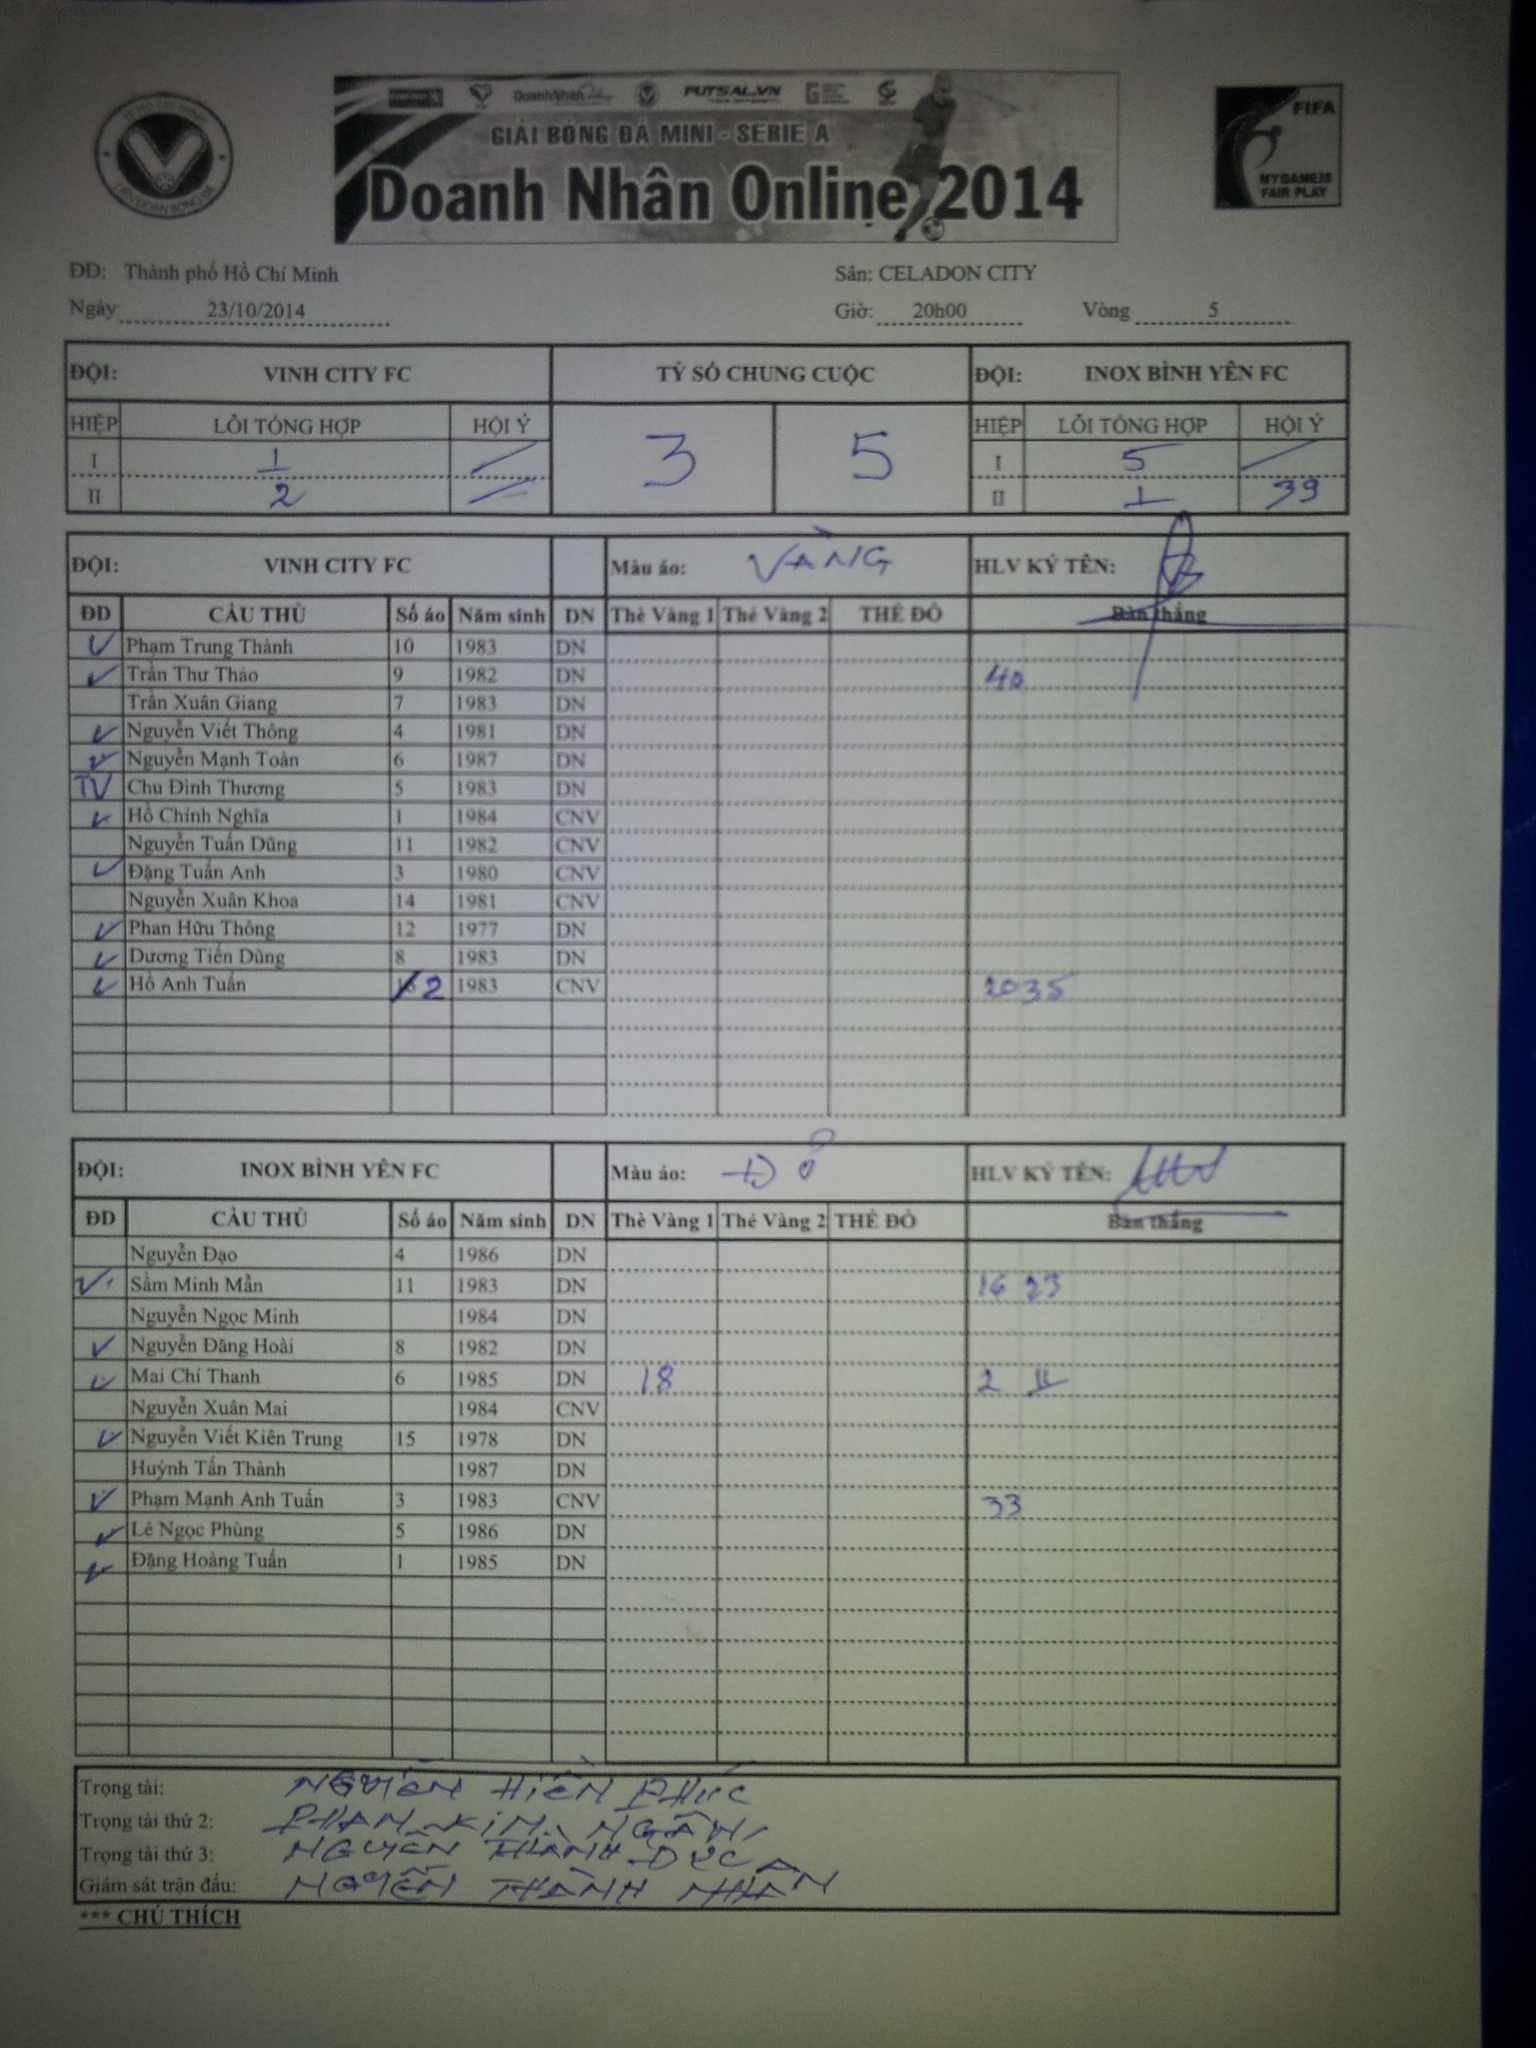 TP HỒ CHÍ MINH
LIÊN ĐOÀN BÓNG ĐÁ
DoanhNhân FUTSAL.VN
GIẢI BÓNG ĐÁ MINI - SERIE A
Doanh Nhân Online 2014
FIFA
MY GAME IS
FAIR PLAY
ĐĐ: Thành phố Hồ Chí Minh Sân: CELADON CITY
Ngày 23/10/2014 Giờ: 20h00 Vòng 5
ĐỘI: VINH CITY FC TỶ SỐ CHUNG CUỘC ĐỘI: INOX BÌNH YÊN FC
HIỆP LỖI TỔNG HỢP HỘI Ý 3 5 HIỆP LỖI TỔNG HỢP HỘI Ý
I 1 I 5
II 2 II 1 39
ĐỘI: VINH CITY FC Màu áo: VÀNG HLV KÝ TÊN:
ĐD CẦU THỦ Số áo Năm sinh DN Thẻ Vàng 1 Thẻ Vàng 2 THẺ ĐỎ Bàn thắng
Phạm Trung Thành 10 1983 DN
Trần Thư Thảo 9 1982 DN 40
Trần Xuân Giang 7 1983 DN
Nguyễn Viết Thông 4 1981 DN
Nguyễn Mạnh Toàn 6 1987 DN
TV Chu Đình Thương 5 1983 DN
Hồ Chính Nghĩa 1 1984 CNV
Nguyễn Tuấn Dũng 11 1982 CNV
Đặng Tuấn Anh 3 1980 CNV
Nguyễn Xuân Khoa 14 1981 CNV
Phan Hữu Thông 12 1977 DN
Dương Tiến Dũng 8 1983 DN
Hồ Anh Tuấn 2 1983 CNV 20 35
ĐỘI: INOX BÌNH YÊN FC Màu áo: ĐỎ HLV KÝ TÊN:
ĐD CẦU THỦ Số áo Năm sinh DN Thẻ Vàng 1 Thẻ Vàng 2 THẺ ĐỎ Bàn thắng
Nguyễn Đạo 4 1986 DN
Sầm Minh Mẫn 11 1983 DN 16 23
Nguyễn Ngọc Minh 1984 DN
Nguyễn Đăng Hoài 8 1982 DN
Mai Chí Thanh 6 1985 DN 18 2 11
Nguyễn Xuân Mai 1984 CNV
Nguyễn Viết Kiên Trung 15 1978 DN
Huỳnh Tấn Thành 1987 DN
Phạm Mạnh Anh Tuấn 3 1983 CNV 33
Lê Ngọc Phùng 5 1986 DN
Đặng Hoàng Tuấn 1 1985 DN
Trọng tài: NGUYỄN HIỀN PHÚC
Trọng tài thứ 2: PHAN KIM NGÂN
Trọng tài thứ 3: NGUYỄN THÀNH ĐỨC
Giám sát trận đấu: NGUYỄN THÀNH NHÂN
*** CHÚ THÍCH